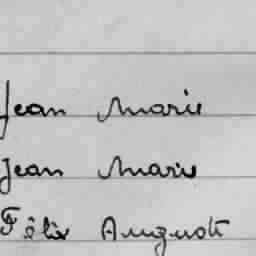 Jean Marie
Jean Marie
Félix Auguste